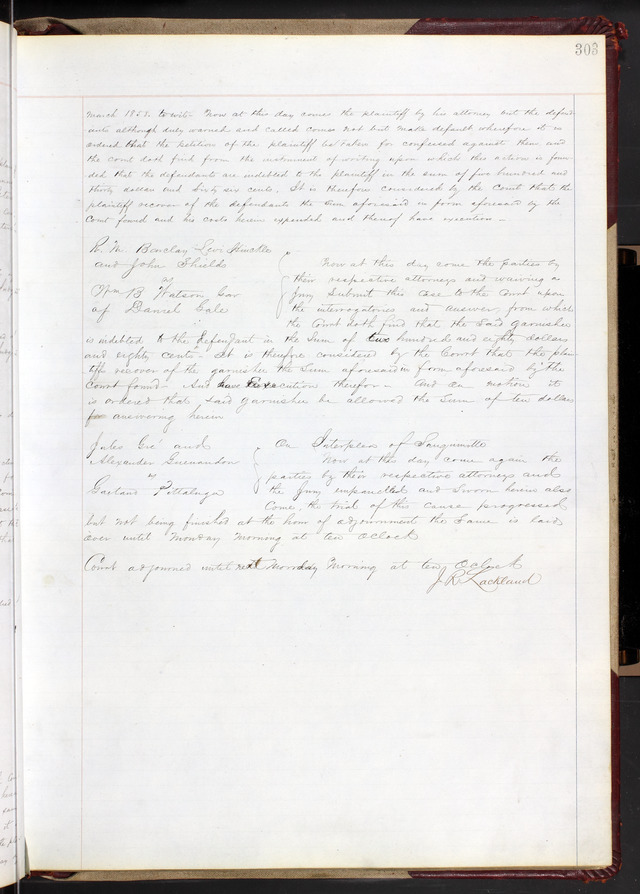 303
March 1853. to wit: Now at this day comes the plaintiff by his attorney but the defend-
ants although duly warned and called comes not but make default wherefore it is
ordered that the petition of the plaintiff be taken for confessed against them and
the court doth find from the instrument of writing upon which this action is foun-
ded that the defendants are indebted to the plaintiff in the sum of five hundred and
thirty dollars and sixty six cents. It is therefore considered by the Court that the
plaintiff recover of the defendants the sum aforesaid in form aforesaid by the
Court found and his costs herein expended and thereof have execution –
R. M. Barclay Levi Hinckle
and John Shields
vs
Wm B Watson Gar
of Daniel Gale
Now at this day come the parties by
their respective attorneys and waiving a
Jury Submit this case to the Court upon
the interrogatories and answer, from which
the Court doth find that the said garnishee
is indebted to the defendant in the Sum of two hundred and eighty dollars
and eighty cents – It is therefore considered by the Court that the plain
tiff recover of the garnishee the Sum aforesaid in form aforesaid by the
Court found – And have Execution therefor – And on motion it
is ordered that said garnishee be allowed the Sum of ten dollars
for answering herein
Jules and
Alexander
vs
Gaetano Pittaluga
On Interplea of
Now at this day come again the
parties by their respective attorneys and
the Jury empanelled and Sworn herein also
Come, the trial of this cause progressed
but not being finished at the hour of adjournment the Same is laid
over until Monday Morning at ten Oclock
Court adjourned until next Monday Morning at ten Oclock
J. R. Lackland